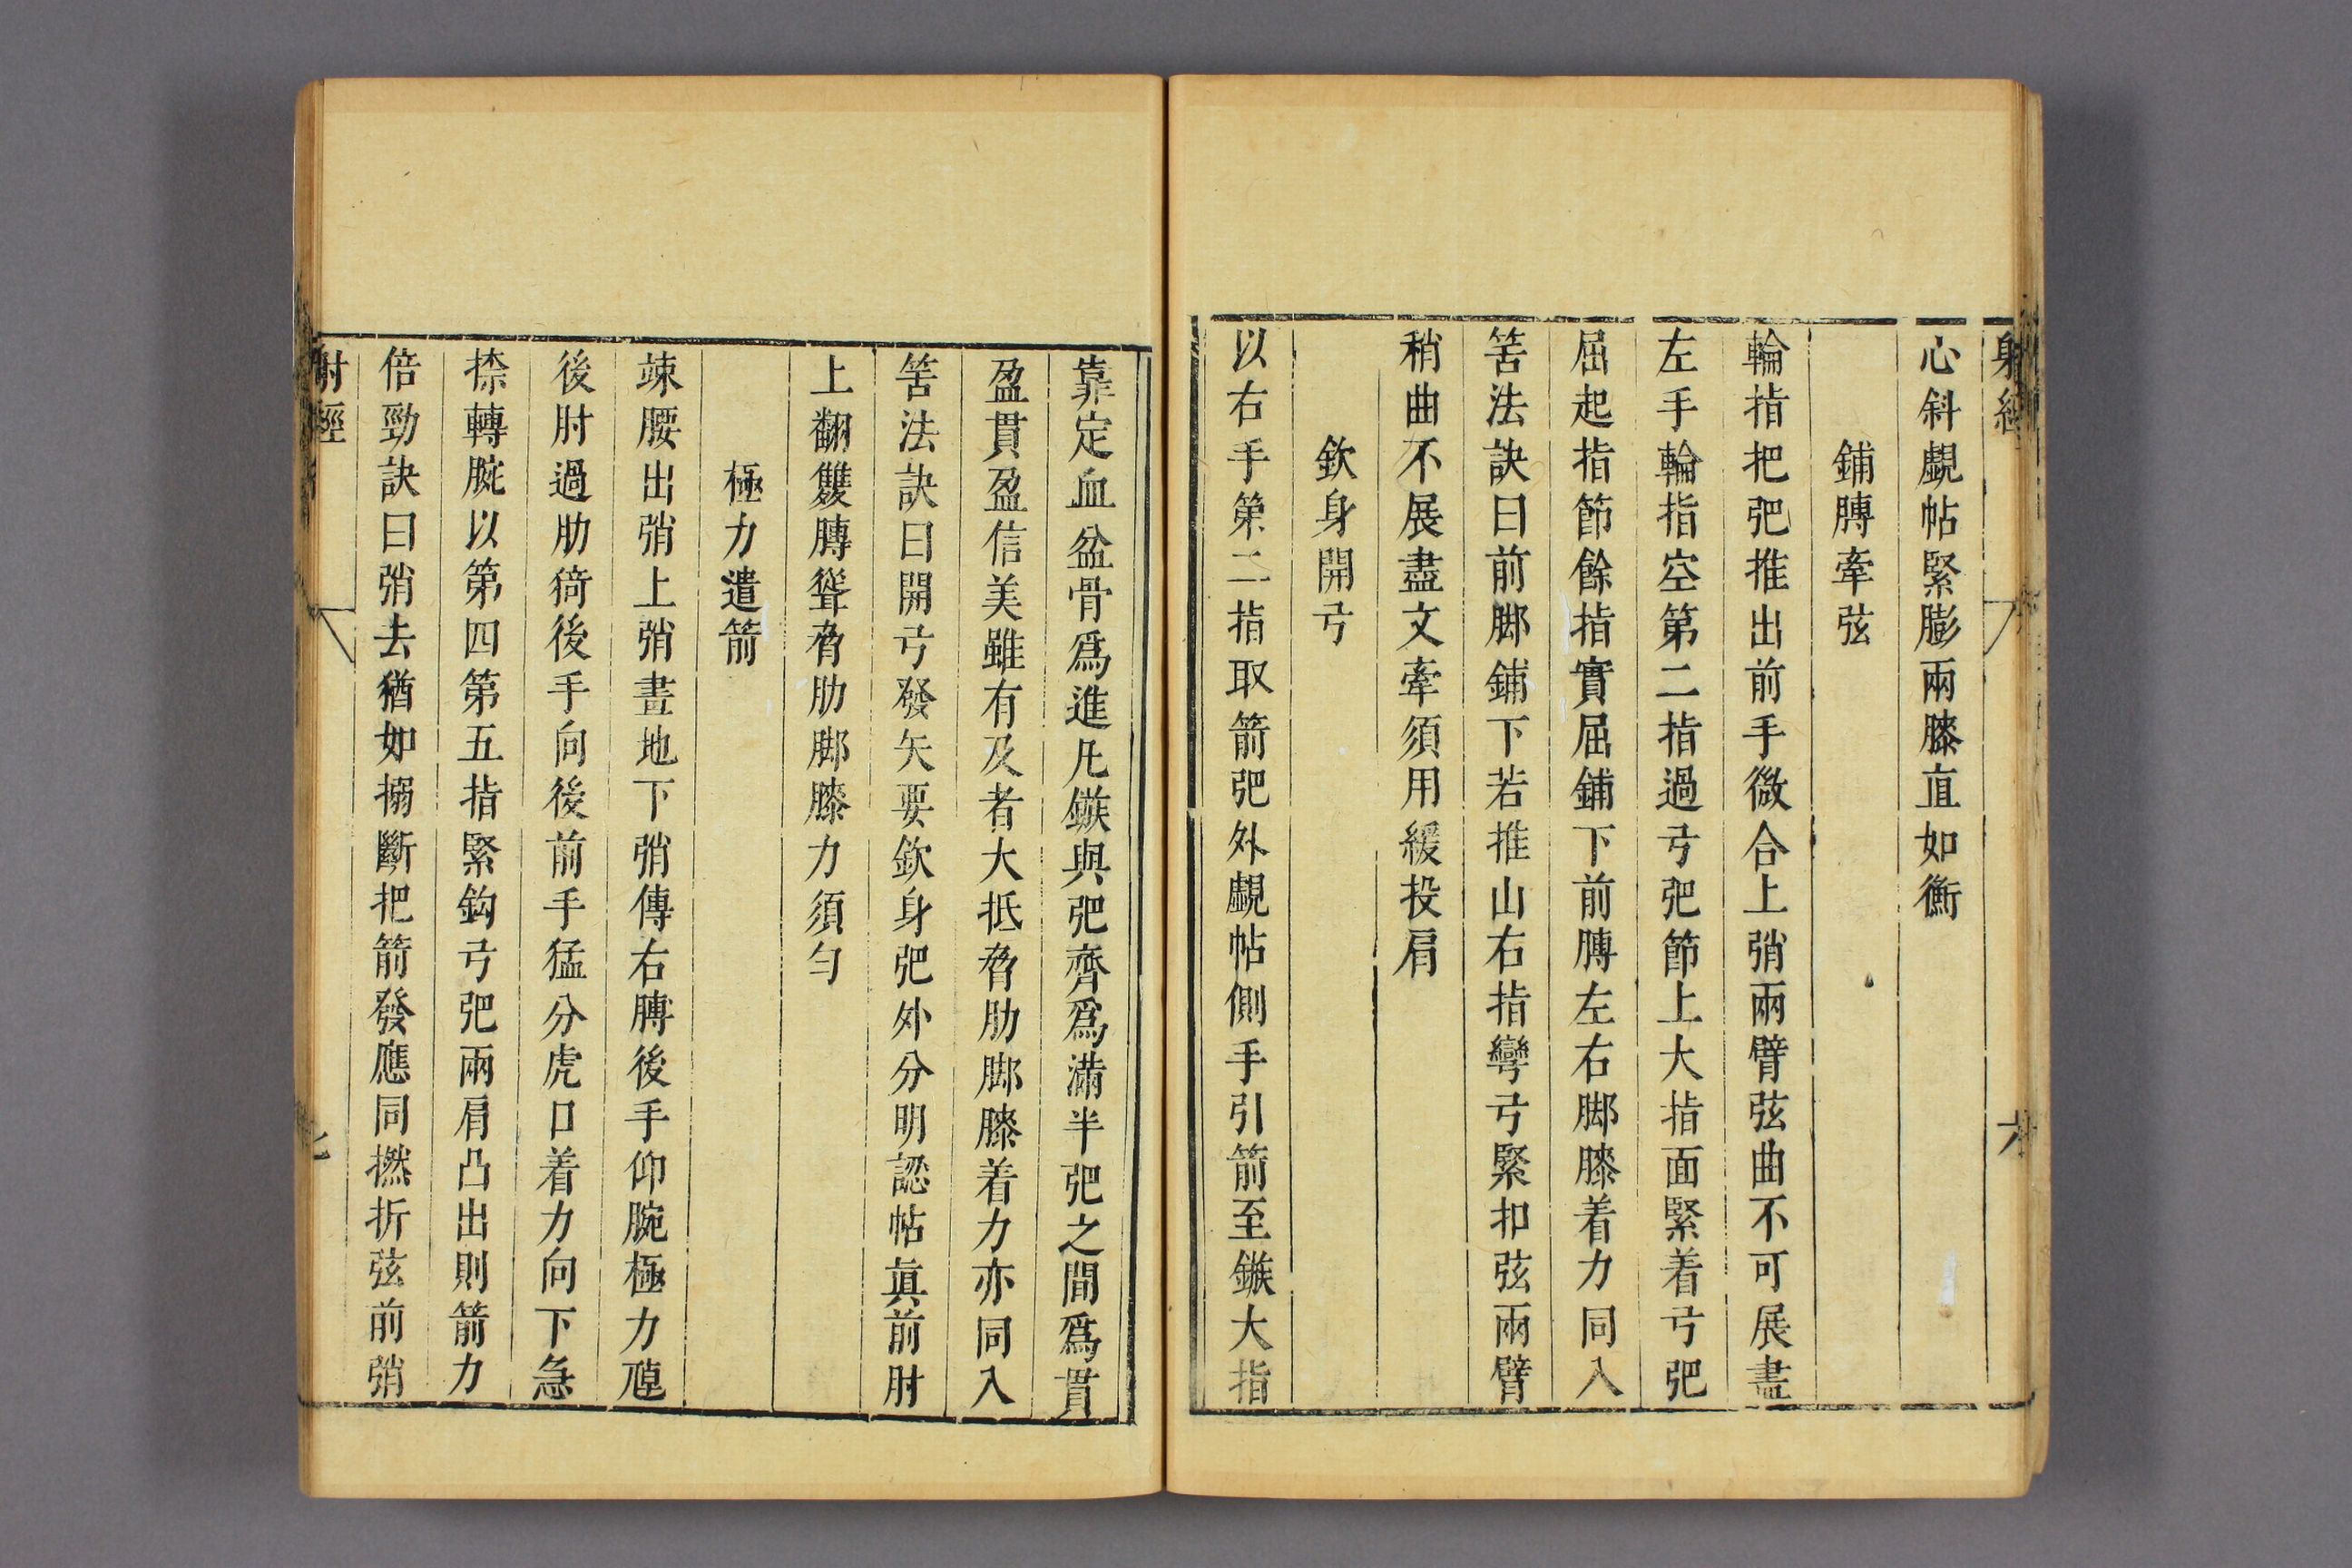 射經
六
心斜覷帖緊膨兩膝直如衡
鋪膊牽弦
輪指把弝推出前手微合上弰兩臂弦曲不可展盡
左手輪指空第二指過弓弝節上大指面緊着弓弝
屈起指節餘指實屈鋪下前膊左右脚膝着力同入
筈法訣曰前脚鋪下若推山右指彎弓緊扣弦兩臂
稍曲不展盡文牽須用緩投肩
欽身開弓
以右手第二指取箭弝外覷帖側手引箭至鏃大指
靠定血盆骨爲進凡鏃與弝齊爲滿半弝之間爲貫
盈貫盈信美雖有及者大抵脅肋脚膝着力亦同入
筈法訣曰開弓發矢要欽身弝外分明認帖眞前肘
上翻雙膊聳脅肋脚膝力須勻
極力遣箭
竦腰出弰上弰畫地下弰傳右膊後手仰腕極力㢸
後肘過肋猗後手向後前手猛分虎口着力向下急
捺轉腕以第四第五指緊鈎弓弝兩肩凸出則箭力
倍勁訣曰弰去猶如搦斷把箭發應同撚折弦前弰
射經
七